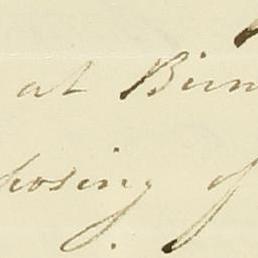 at Birm
hosing of